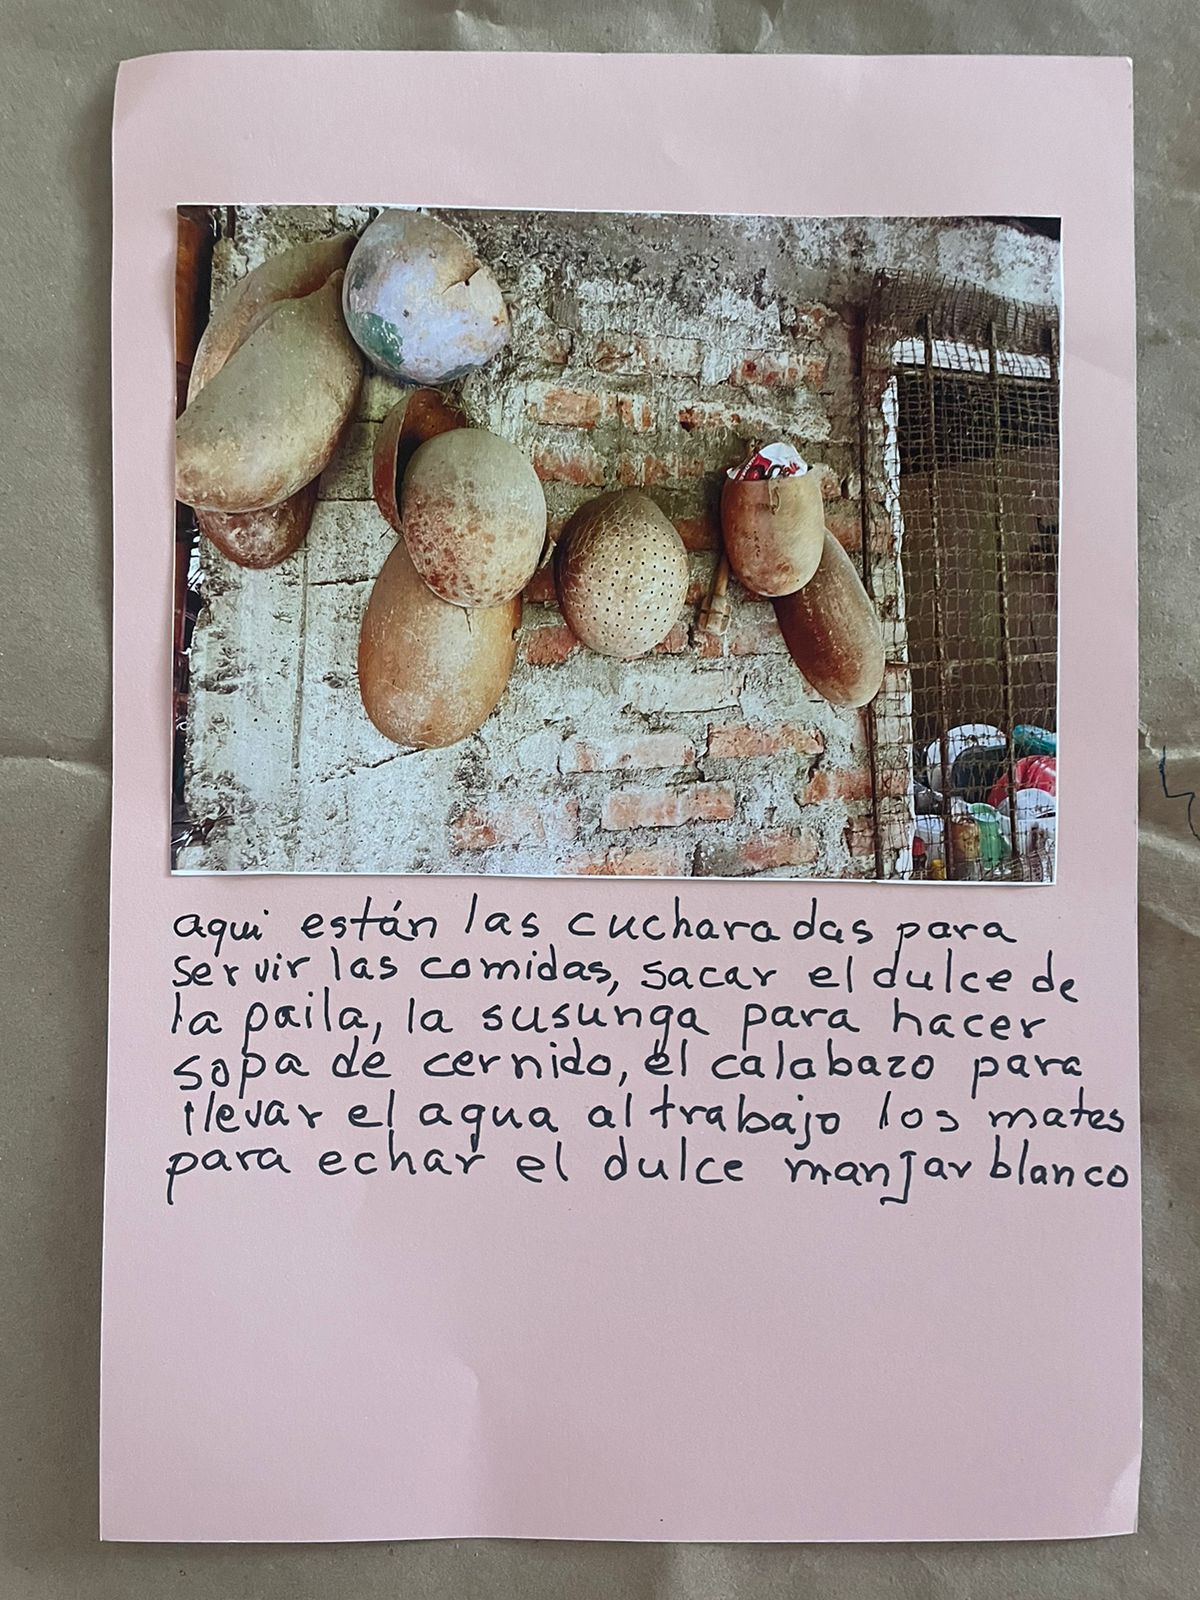 aqui están las cucharadas para
servir las comidas, sacar el dulce de
la paila, la susunga para hacer
sopa de cernido, el calabazo para
llevar el agua al trabajo los mates
para echar el dulce manjar blanco